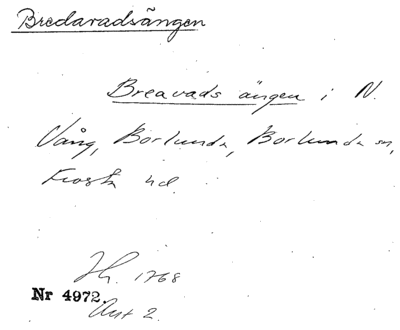 Bredaradsängen
Breavads ängen i N.
Vång, Borlunda, Borlunda sn,
Frosta hd.
Jh. 1768
Nr 4972.
Akt 2.